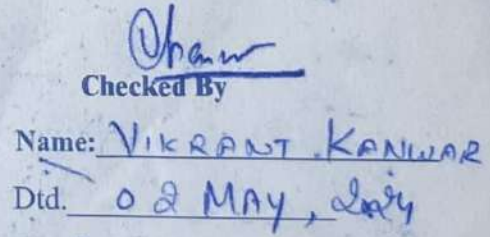 Checked By
Name: VIKRANT KANWAR
Dtd. 02 MAY, 2024